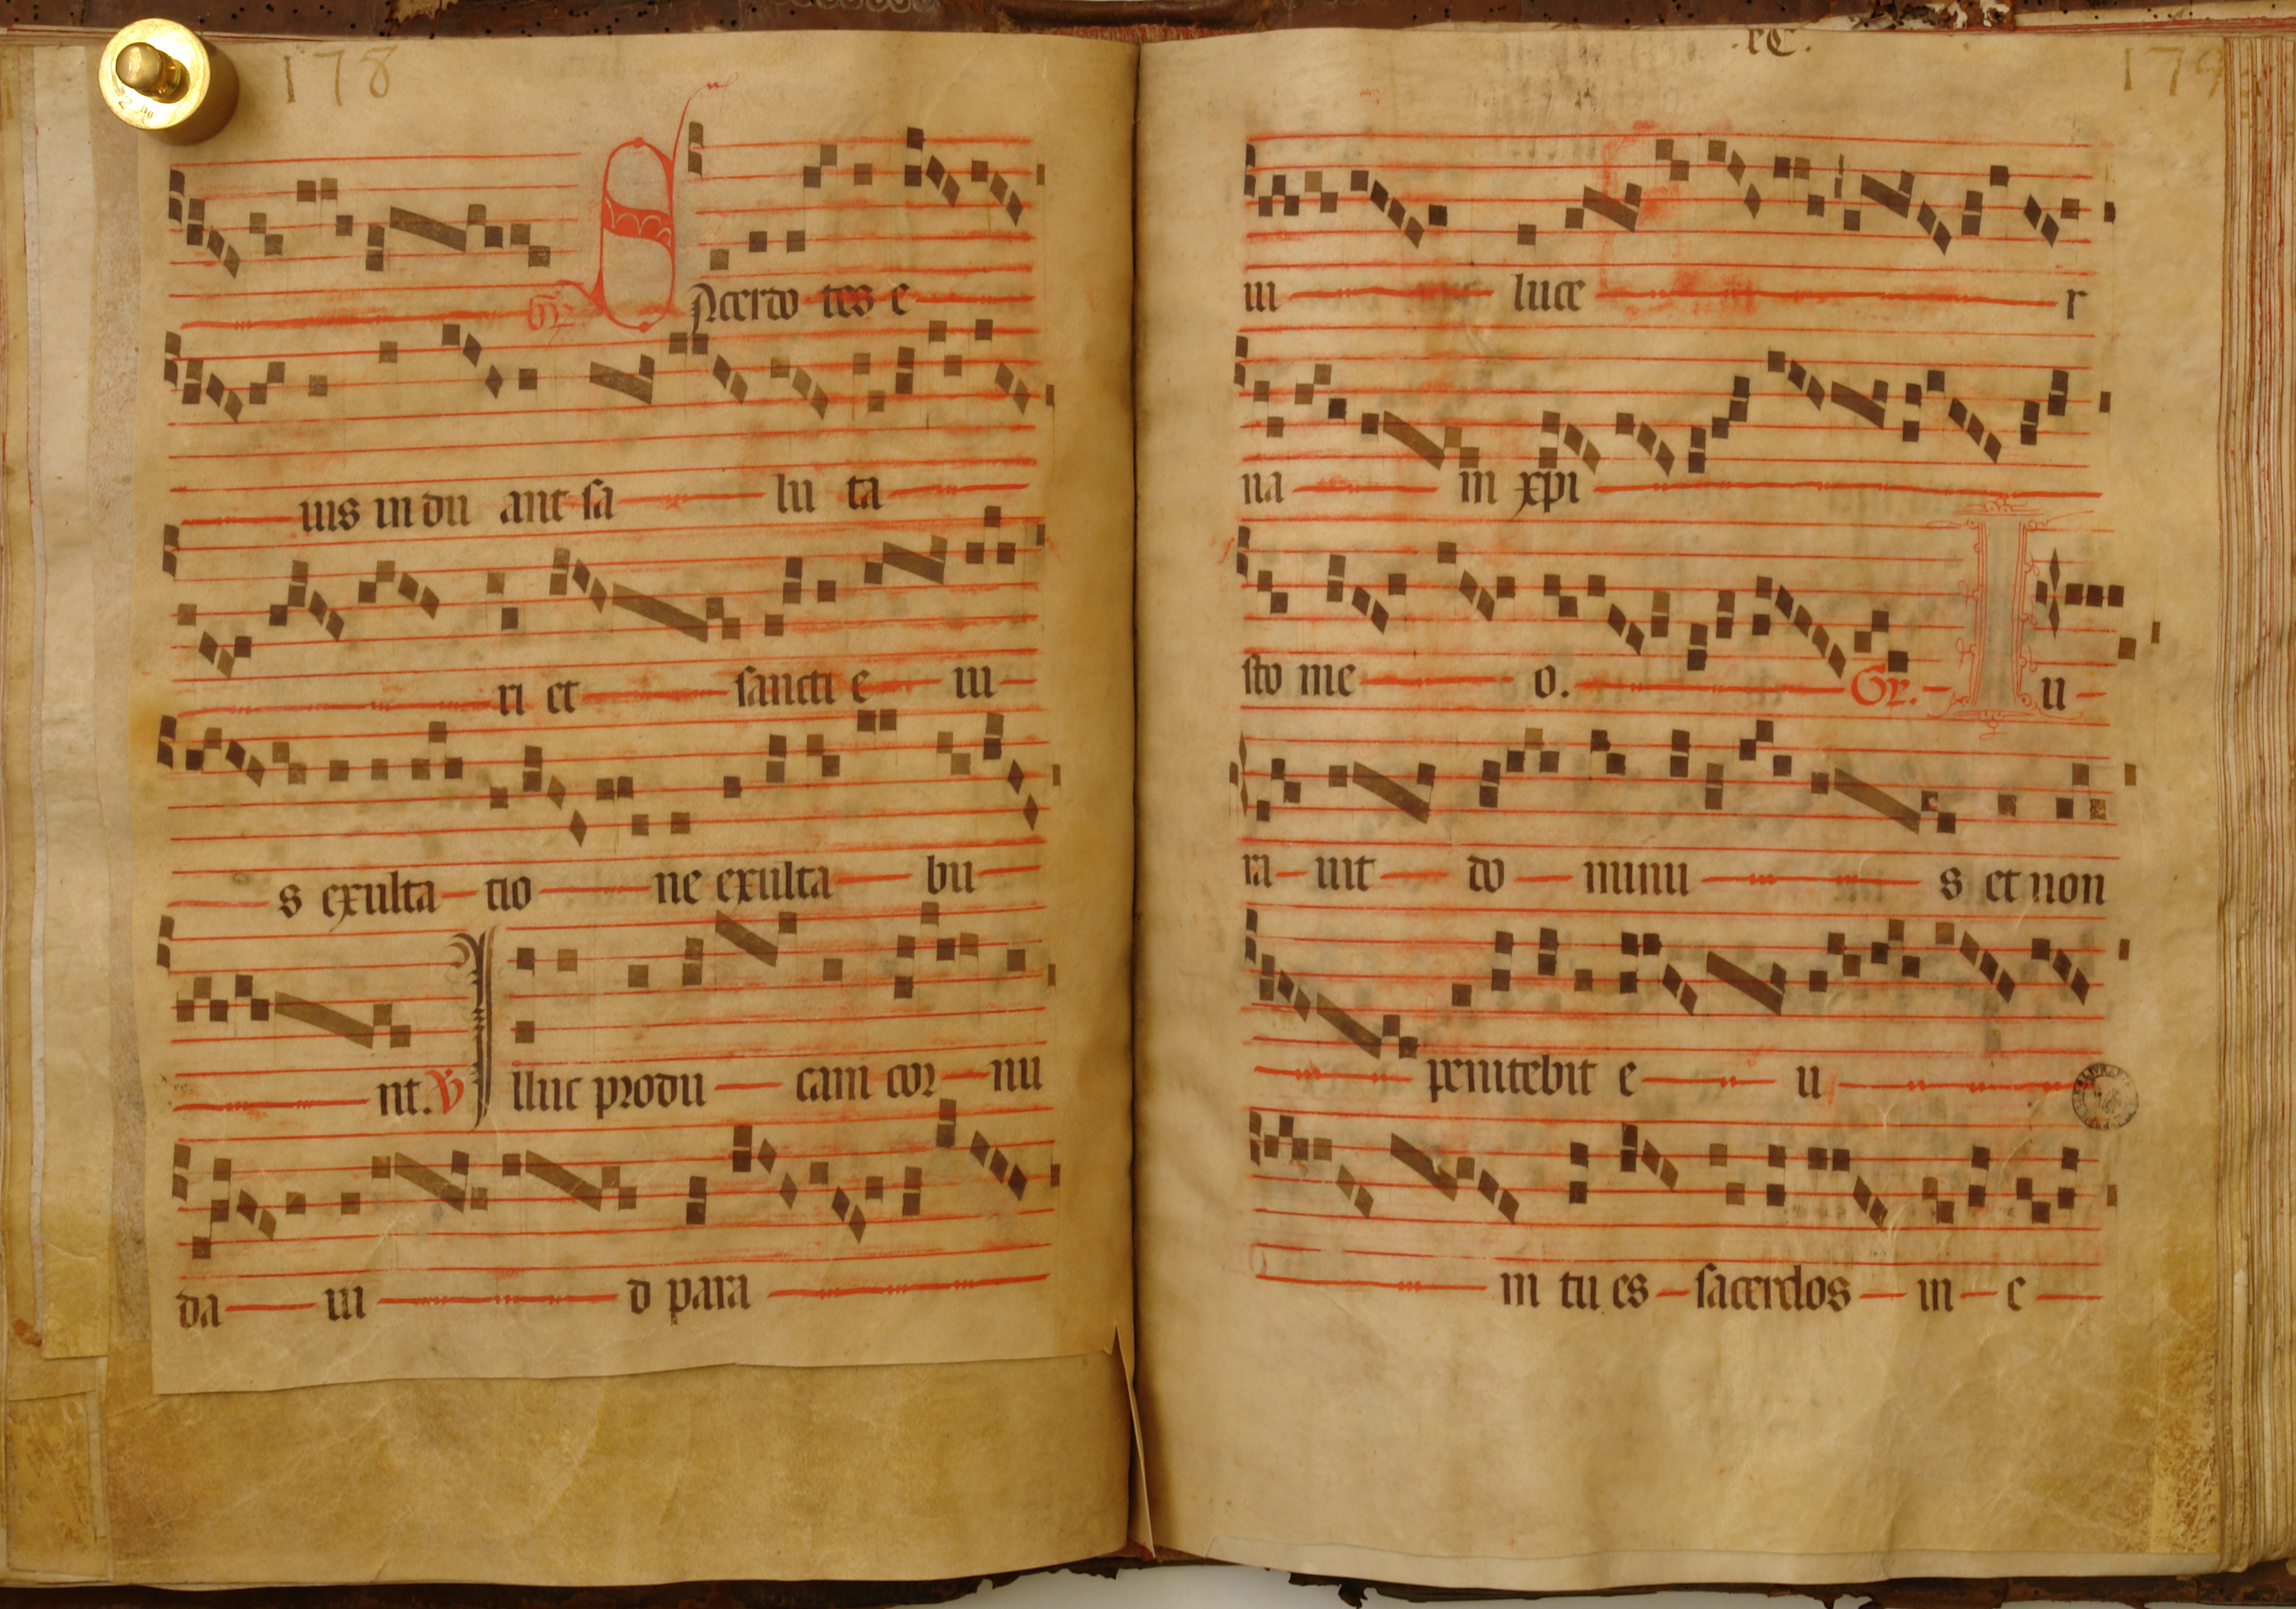 178
Gr. Sacerdo tes e
ius indu ant sa lu ta
ri et sancti e iu
s exulta tio ne exulta bu
nt. V Illuc produ cam cor nu
da ui d para
xC.
179
ui luce r
na in xpi
sto me o. Gr. Iu
ra uit do minu s et non
penitebit e u
m tu es sacerdos in e